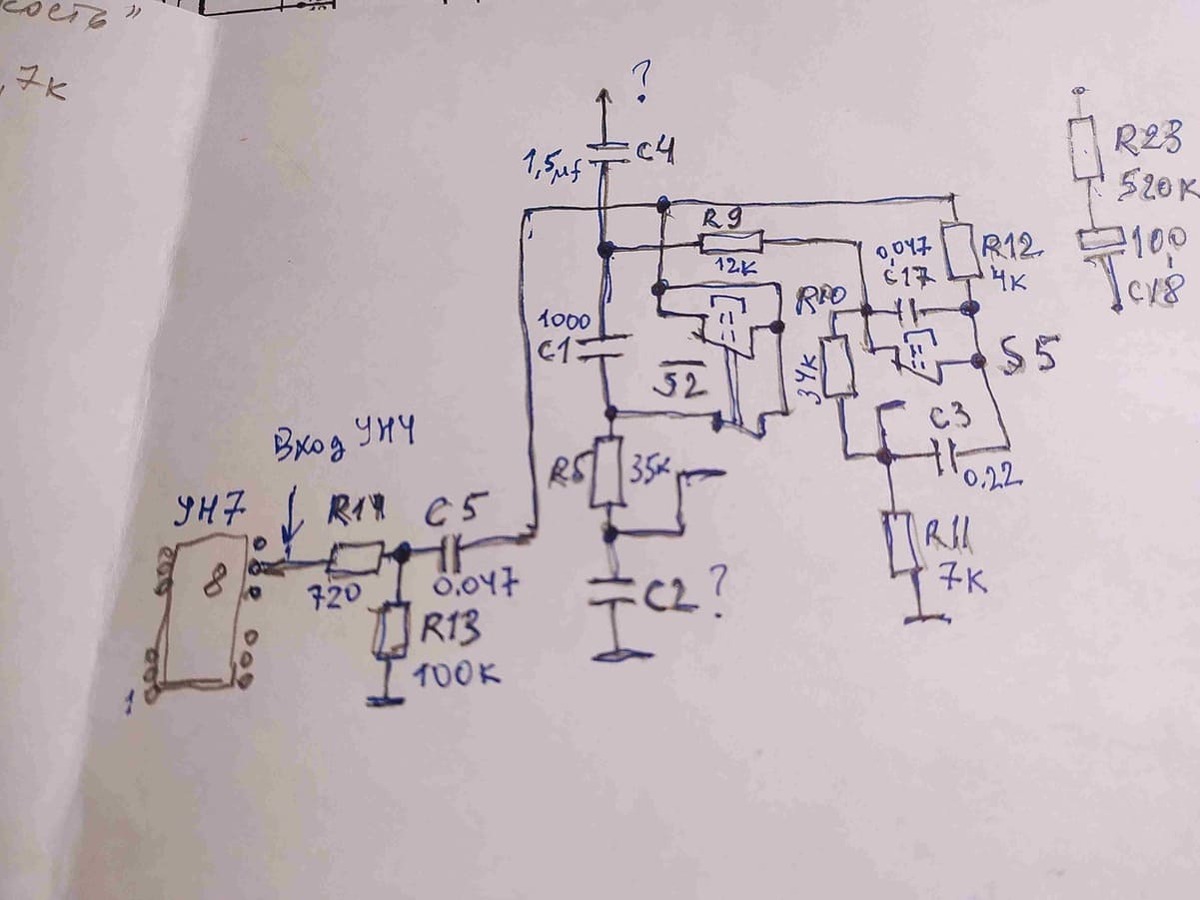 кость"
,7к
?
1,5μf C4
R9
12к
0,047
C17
R12
4к
R23
520к
100,0
C18
1000
C1
R10
34к
S2
S5
Вход УНЧ
R5 35к
C3
0.22
УН7
8
1
R14
720
C5
0.047
R13
100к
C2 ?
R11
7к